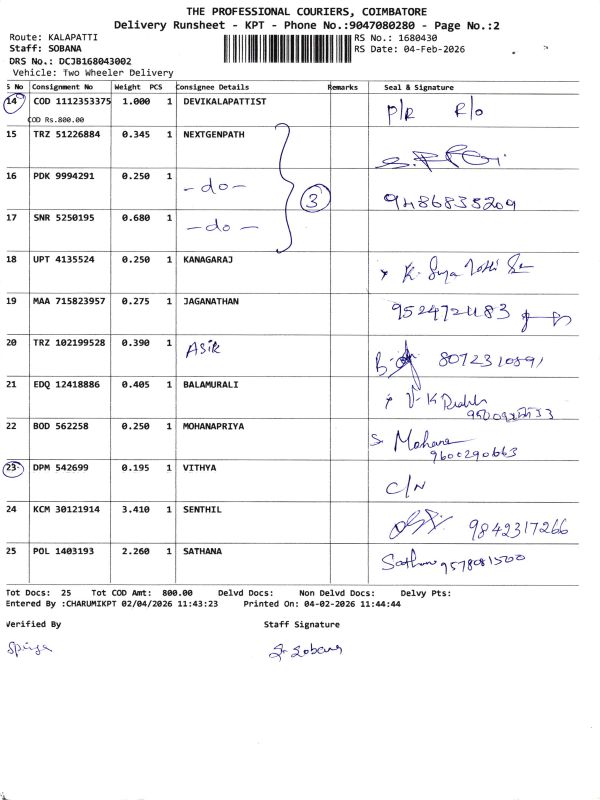 THE PROFESSIONAL COURIERS, COIMBATORE
Delivery Runsheet - KPT - Phone No.:9047080280 - Page No.:2
Route: KALAPATTI
RS No.: 1680430
Staff: SOBANA
RS Date: 04-Feb-2026
DRS No.: DCJB168043002
Vehicle: Two Wheeler Delivery
S No Consignment No Weight PCS Consignee Details Remarks Seal & Signature
14 COD 1112353375 1.000 1 DEVIKALAPATTIST P/R R/O
COD Rs.800.00
15 TRZ 51226884 0.345 1 NEXTGENPATH
16 PDK 9994291 0.250 1 -do- 3 9486835209
17 SNR 5250195 0.680 1 -do-
18 UPT 4135524 0.250 1 KANAGARAJ K.
19 MAA 715823957 0.275 1 JAGANATHAN
20 TRZ 102199528 0.390 1 ASIK
21 EDQ 12418886 0.405 1 BALAMURALI V-K
22 BOD 562258 0.250 1 MOHANAPRIYA Mohana 9600290663
23 DPM 542699 0.195 1 VITHYA C/N
24 KCM 30121914 3.410 1 SENTHIL 9842317266
25 POL 1403193 2.260 1 SATHANA 9578081500
Tot Docs: 25 Tot COD Amt: 800.00 Delvd Docs: Non Delvd Docs: Delvy Pts:
Entered By :CHARUMIKPT 02/04/2026 11:43:23 Printed On: 04-02-2026 11:44:44
Verified By Staff Signature
Sobana